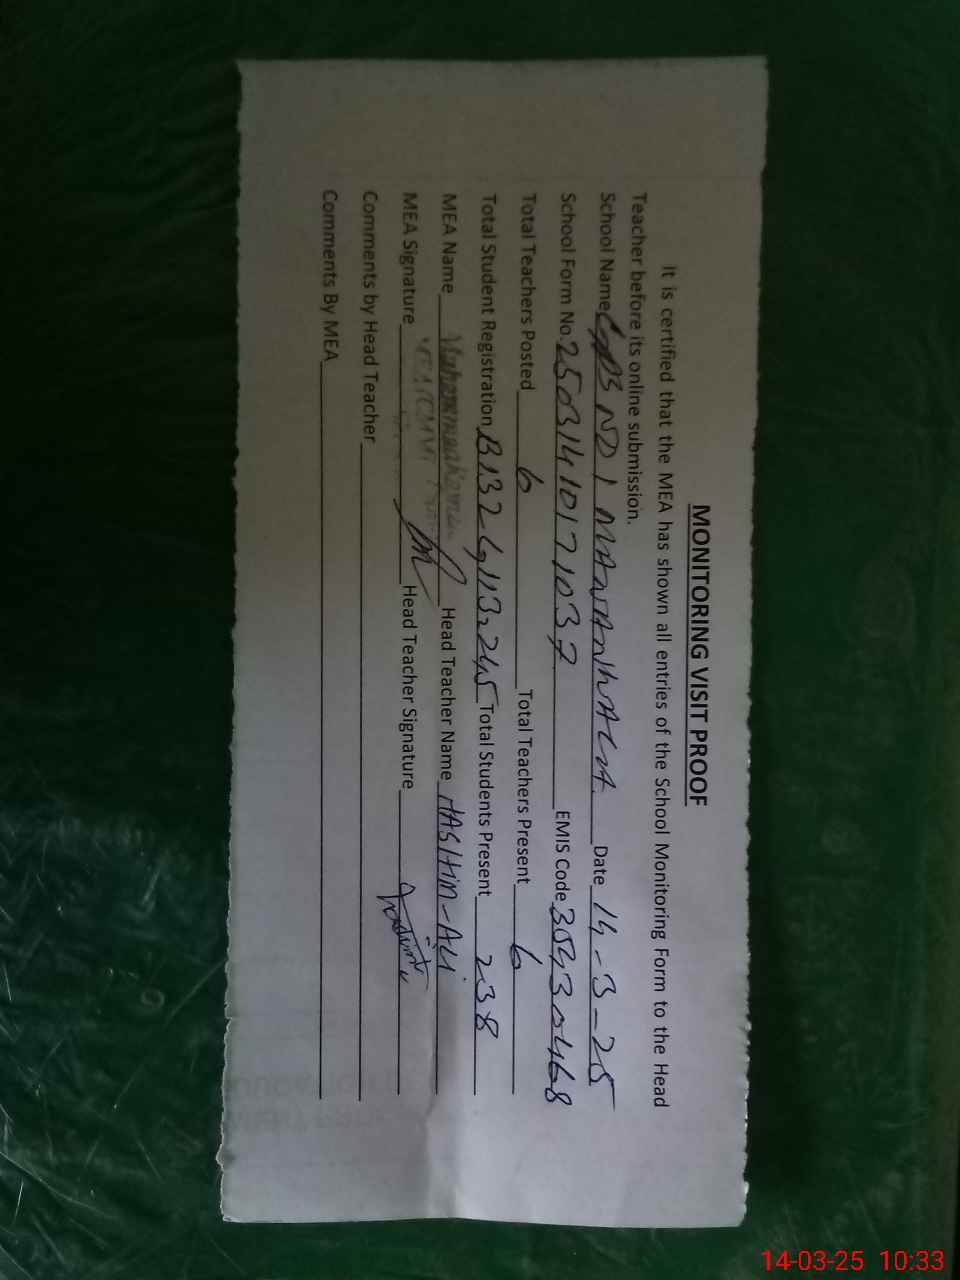 MONITORING VISIT PROOF
It is certified that the MEA has shown all entries of the School Monitoring Form to the Head
Teacher before its online submission.
School Name GPS NO 1 MANANWALA Date 14-3-25
School Form No. 2503141017 1037 EMIS Code 35430468
Total Teachers Posted 6 Total Teachers Present 6
Total Student Registration B132 G113=245 Total Students Present 238
MEA Name Head Teacher Name HASHIM-ALI
MEA Signature Head Teacher Signature
Comments by Head Teacher
Comments By MEA
14-03-25 10:33